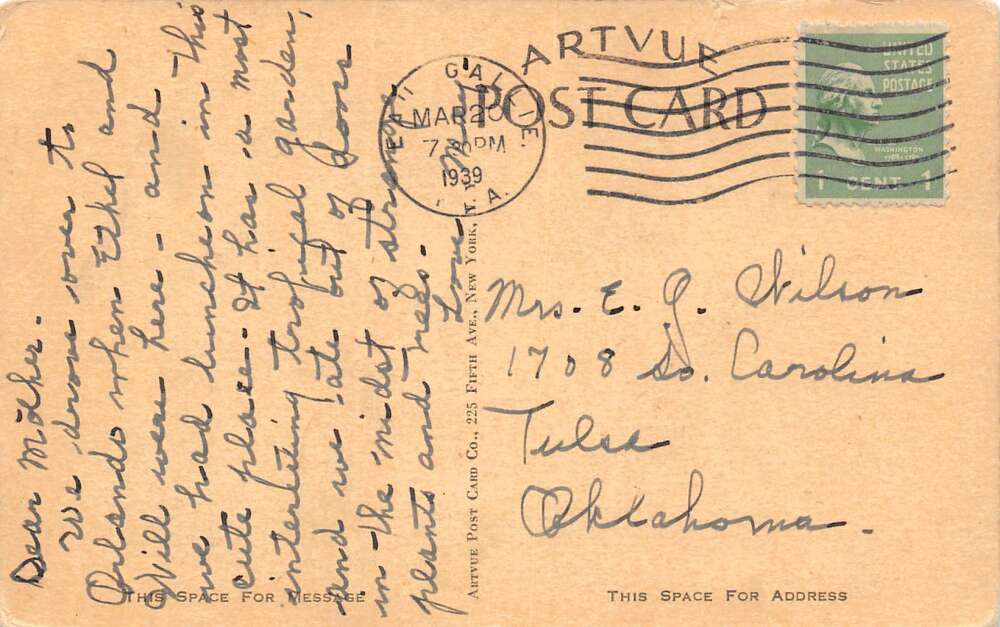 Dear Mother.
We drove over to
Orlando when Ethel and
Will were here - and
we had luncheon in this
cute place. It has a most
interesting tropical garden,
and we ate out of doors
in the midst of strange
plants and trees.
Love
ARTVUE
POST CARD
EAU GALLIE
FLA.
MAR 20
7 30 PM
1939
UNITED
STATES
POSTAGE
WASHINGTON
1789-1797
1 CENT 1
Mrs. E. G. Wilson
1708 So. Carolina
Tulsa
Oklahoma.
ARTVUE POST CARD CO., 225 FIFTH AVE., NEW YORK, N. Y.
THIS SPACE FOR MESSAGE
THIS SPACE FOR ADDRESS